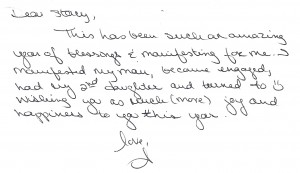 Dear Stacy,
This has been such an amazing
year of blessings & manifesting for me. I
manifested my man, became engaged,
had my 2nd daughter and turned to
Wishing you as much (more) joy and
happiness to you this year.
love,